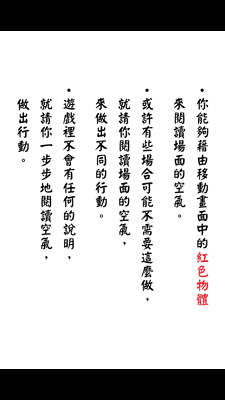 ・你能夠藉由移動畫面中的紅色物體
來閱讀場面的空氣。
・或許有些場合可能不需要這麼做，
就請你閱讀場面的空氣，
來做出不同的行動。
・遊戲裡不會有任何的說明，
就請你一步步地閱讀空氣，
做出行動。